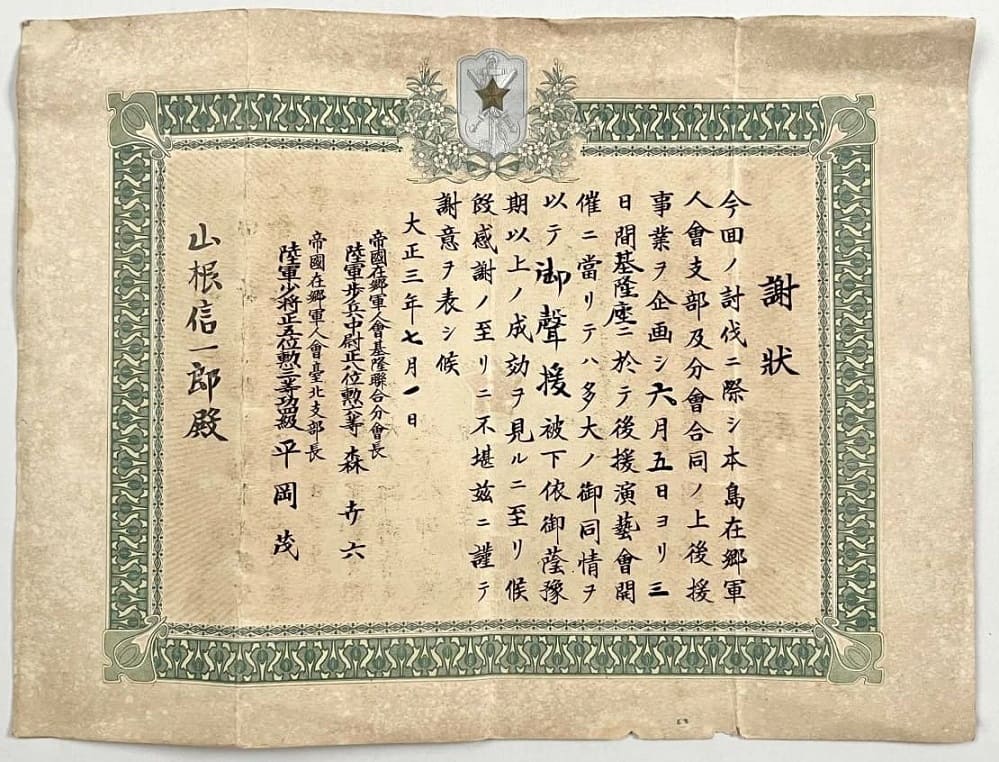 謝狀
今回ノ討伐ニ際シ本島在郷軍
人會支部及分會合同ノ上後援
事業ヲ企画シ六月五日ヨリ三
日間基隆座ニ於テ後援演藝會開
催ニ當リテハ多大ノ御同情ヲ
以テ御聲援被下依御蔭豫
期以上ノ成効ヲ見ルニ至リ候
段感謝ノ至リニ不堪茲ニ謹テ
謝意ヲ表シ候
大正三年七月一日
帝國在郷軍人會基隆聯合分會長
陸軍歩兵中尉正八位勲六等 森 六
帝國在郷軍人會臺北支部長
陸軍少將正五位勲三等功四級 平岡茂
山根信一郎殿